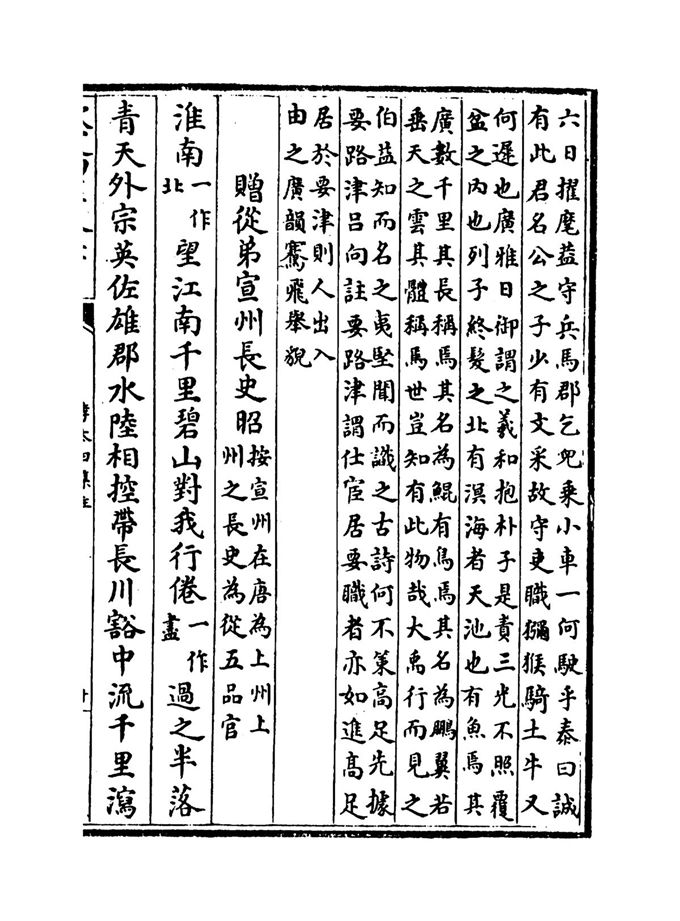 六日擢麾葢守兵馬郡乞兒乘小車一何駛乎泰曰誠
有此君名公之子少有文采故守吏職獼猴騎土牛又
何遲也廣雅日御謂之羲和抱朴子是責三光不照覆
盆之内也列子終髮之北有溟海者天池也有魚焉其
廣數千里其長稱焉其名為鯤有鳥焉其名為鵬翼若
垂天之雲其體稱焉世豈知有此物哉大禹行而見之
伯益知而名之夷堅聞而識之古詩何不策高足先據
要路津吕向註要路津謂仕宦居要職者亦如進髙足
居於要津則人出入
由之廣韻騫飛舉貌
贈從弟宣州長史昭按宣州在唐為上州上州之長史為從五品官
淮南一作北望江南千里碧山對我行倦一作盡過之半落
青天外宗英佐雄郡水陸相控帶長川豁中流千里瀉